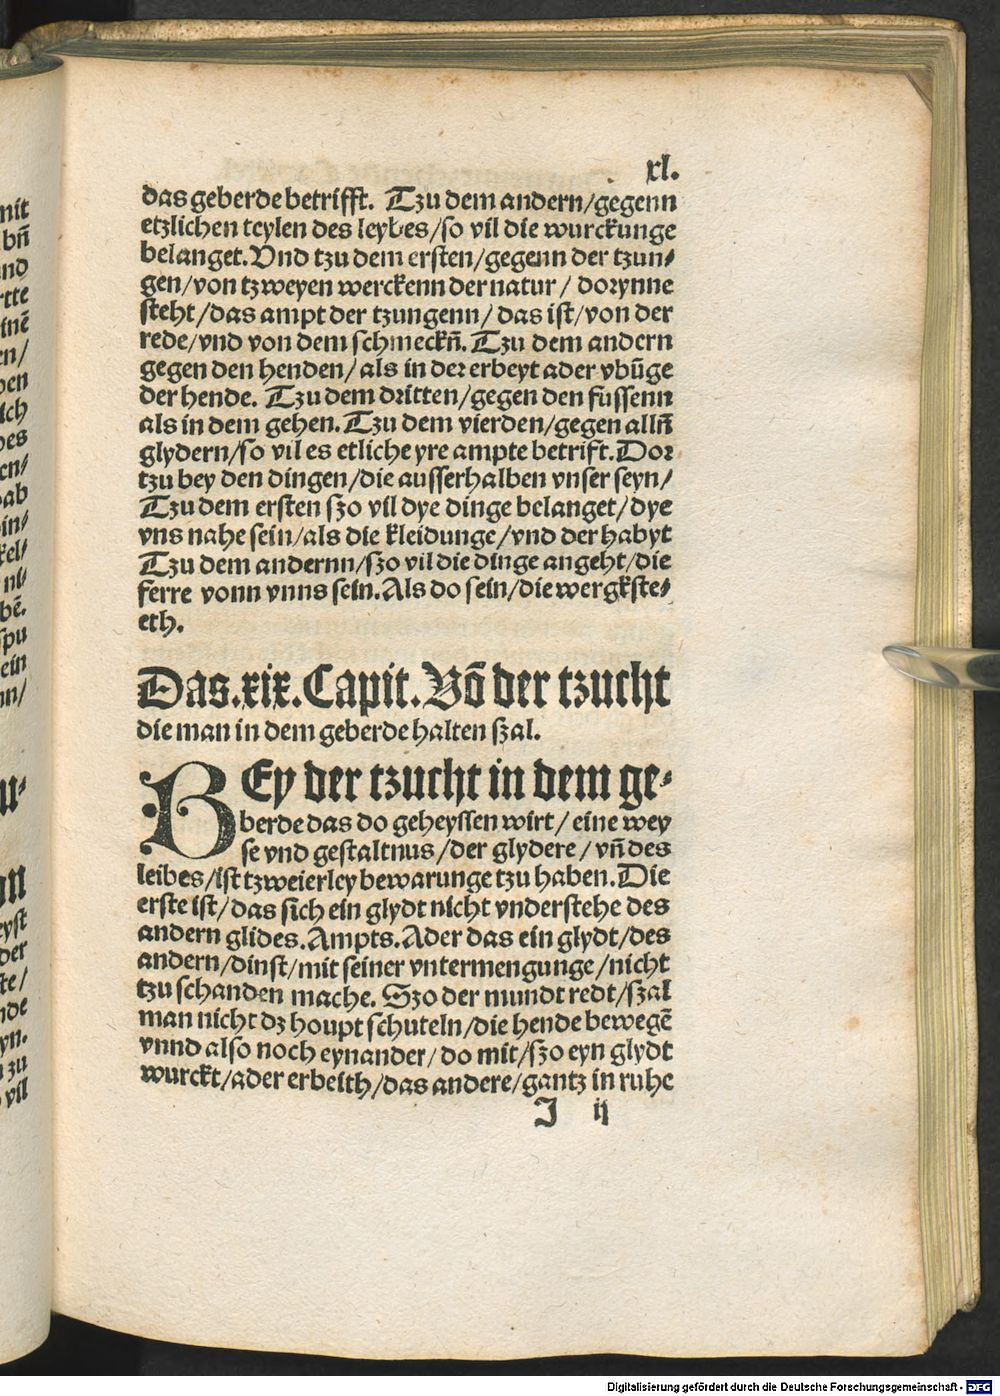 xl.
das geberde betrifft. Tzu dem andern/gegenn
etzlichen teylen des leybes/so vil die wurckunge
belanget. Vnd tzu dem ersten/gegenn der tzun⸗
gen/von tzweyen werckenn der natur/ dorynne
steht/das ampt der tzungenn/ das ist/von der
rede/vnd von dem schmeckn̄. Tzu dem andern
gegen den henden/ als in der erbeyt ader vbūge
der hende. Tzu dem dritten/gegen den fussenn
als in dem gehen. Tzu dem vierden/gegen alln̄
glydern/so vil es etliche yre ampte betrift. Dor
tzu bey den dingen/die ausserhalben vnser seyn/
Tzu dem ersten szo vil dye dinge belanget/dye
vns nahe sein/als die kleidunge/vnd der habyt
Tzu dem andernn/szo vil die dinge angeht/die
ferre vonn vnns sein. Als do sein/die wergkste⸗
eth.
Das .xix. Capit. Vō der tzucht
die man in dem geberde halten szal.
BEy der tzucht in dem ge⸗
berde das do geheyssen wirt/ eine wey
se vnd gestaltnus/der glydere/ vn̄ des
leibes/ist tzweierley bewarunge tzu haben. Die
erste ist/das sich ein glydt nicht vnderstehe des
andern glides. Ampts. Ader das ein glydt/des
andern/dinst/mit seiner vntermengunge/nicht
tzu schanden mache. Szo der mundt redt/szal
man nicht dz houpt schuteln/die hende bewegē
vnnd also noch eynander/do mit/szo eyn glydt
wurckt/ader erbeith/das andere/gantz in ruhe
J ij
mit
bn̄
rtte
inē
en/
ben
ich
bes
en⸗
ab
in⸗
kel⸗
ni⸗
bē.
spu
ein
nn/
der
te/
nde
yn.
zu
vil
Digitalisierung gefördert durch die Deutsche Forschungsgemeinschaft - DFG